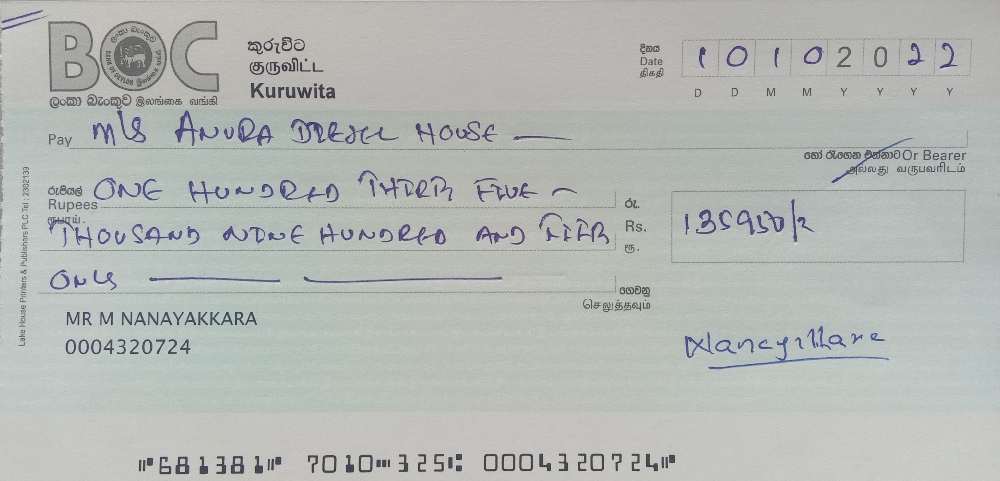 BOC
ලංකා බැංකුව இலங்கை வங்கி
කුරුවිට
குருவிட்ட
Kuruwita
දිනය
Date
திகதி
1 0 1 0 2 0 2 2
D D M M Y Y Y Y
Pay M/S ANURA DIESEL HOUSE
හෝ රැගෙන එන්නාට Or Bearer
அல்லது வருபவரிடம்
රුපියල් ONE HUNDRED THIRTY FIVE
Rupees
ரூபாய்.
THOUSAND NINE HUNDRED AND FIFTY
ONLY
රු.
Rs.
ரூ.
135950/-
ගෙවනු
செலுத்தவும்
MR M NANAYAKKARA
0004320724
Lake House Printers & Publishers PLC Tel : 2302139
⑈681381⑈ 7010⑉325⑆ 0004320724⑈